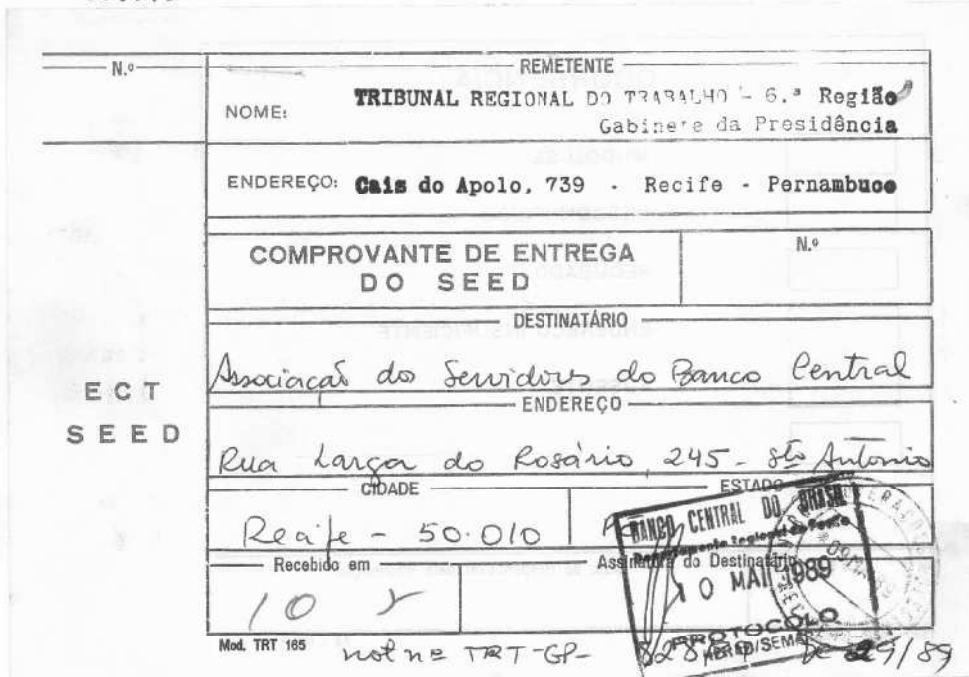 N.º
REMETENTE
NOME: TRIBUNAL REGIONAL DO TRABALHO - 6.ª Região
Gabinete da Presidência
ENDEREÇO: Cais do Apolo, 739 - Recife - Pernambuco
COMPROVANTE DE ENTREGA
DO SEED
N.º
DESTINATÁRIO
Associação dos Servidores do Banco Central
ECT
SEED
ENDEREÇO
Rua Larga do Rosário, 245 - Sto Antonio
CIDADE
ESTADO
Recife - 50.010
BANCO CENTRAL DO BRASIL
Recebido em
Assinatura do Destinatário
10 MAI 1989
10 5
PROTOCOLO
Mod. TRT 165
not nº TRT-GP-